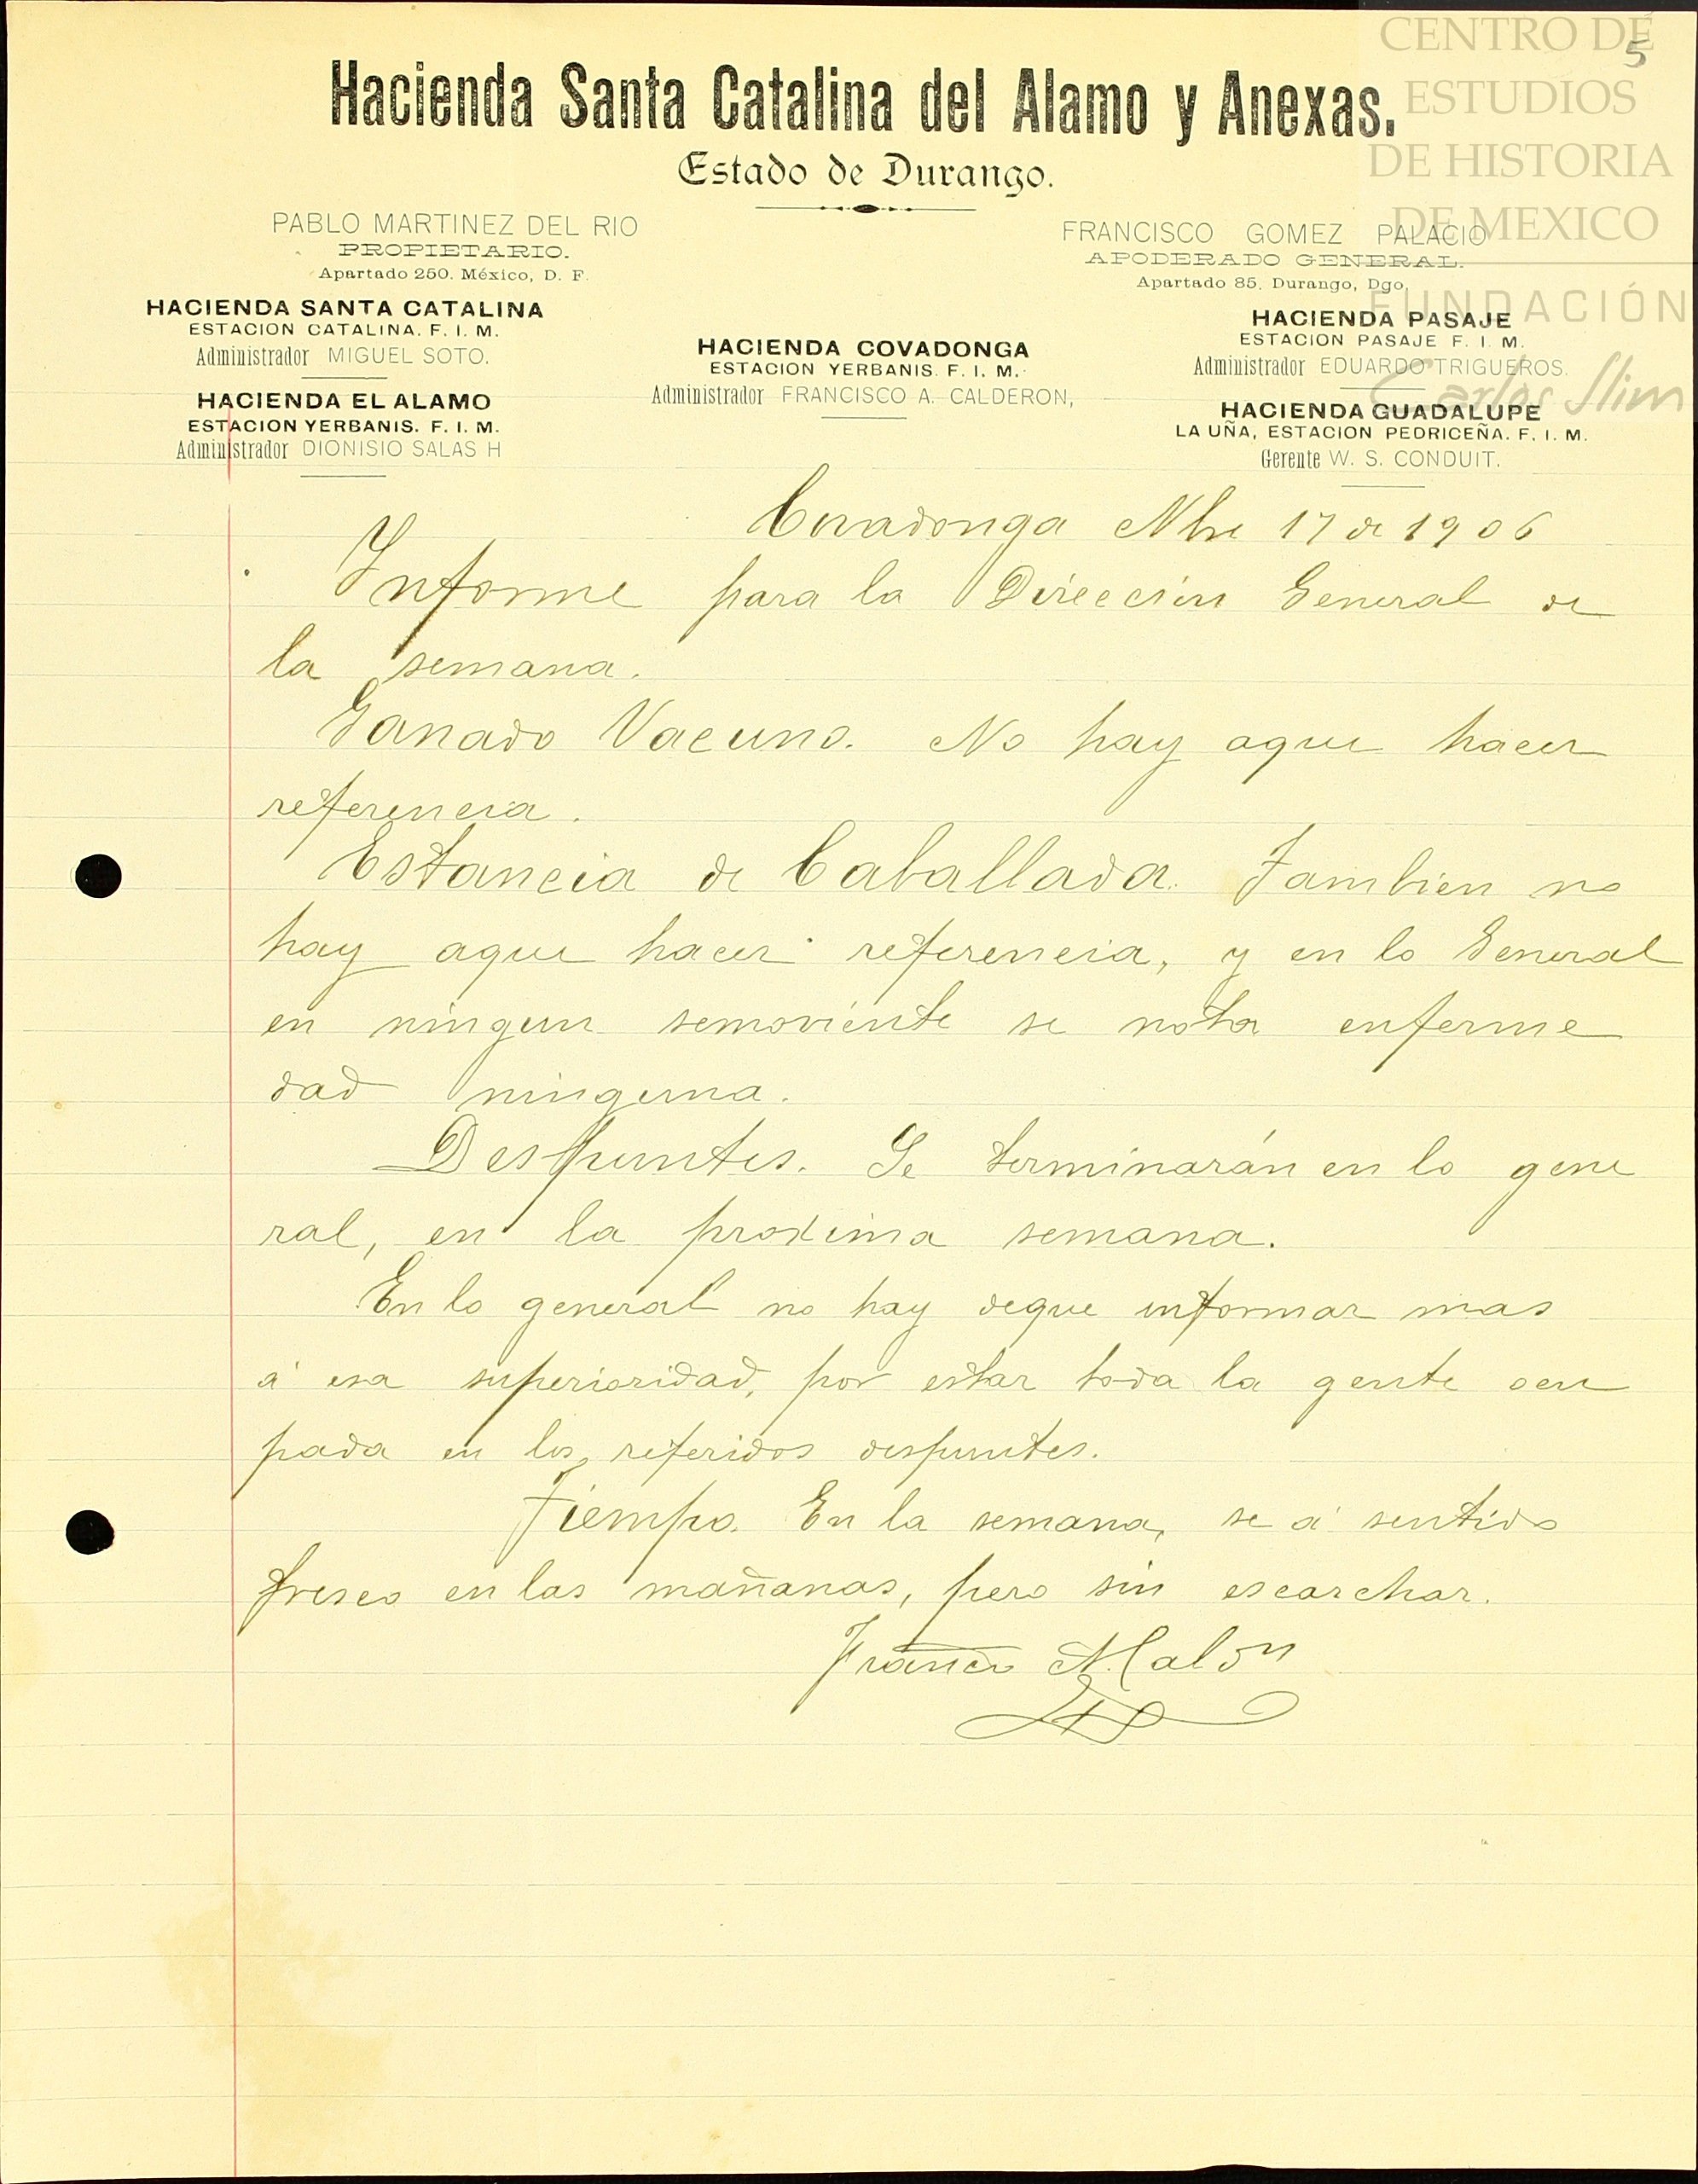 CENTRO DE
ESTUDIOS
DE HISTORIA
DE MEXICO
FUNDACIÓN
Carlos Slim
5
Hacienda Santa Catalina del Alamo y Anexas.
Estado de Durango.
PABLO MARTINEZ DEL RIO
PROPIETARIO.
Apartado 250. México, D. F.
FRANCISCO GOMEZ PALACIO
APODERADO GENERAL.
Apartado 85, Durango, Dgo.
HACIENDA SANTA CATALINA
ESTACION CATALINA. F. I. M.
Administrador MIGUEL SOTO.
HACIENDA EL ALAMO
ESTACION YERBANIS. F. I. M.
Administrador DIONISIO SALAS H
HACIENDA COVADONGA
ESTACION YERBANIS. F. I. M.
Administrador FRANCISCO A. CALDERON,
HACIENDA PASAJE
ESTACION PASAJE F. I. M.
Administrador EDUARDO TRIGUEROS.
HACIENDA GUADALUPE
LA UÑA, ESTACION PEDRICEÑA. F. I. M.
Gerente W. S. CONDUIT.
Covadonga Nbre 17 de 1906
Informe para la Direccion General de
la semana.
Ganado Vacuno. No hay aque hacer
referencia.
Estancia de Caballada. Tambien no
hay aque hacer referencia, y en lo General
en ningun semoviente se nota enferme
dad ninguna.
Despuntes. Se terminarán en lo gene
ral, en la proxima semana.
En lo general no hay deque informar mas
á esa superioridad, por estar toda la gente ocu
pada en los referidos despuntes.
Tiempo. En la semana, se á sentido
fresco en las mañanas, pero sin escarchar.
Franco